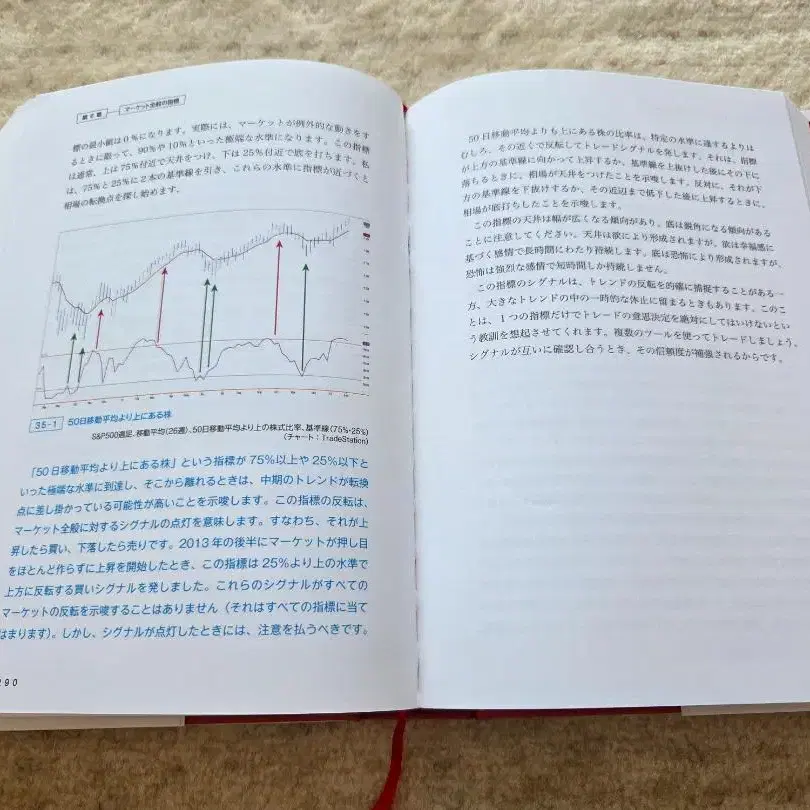 第6章 マーケット全般の指標
標の最小値は0％になります。実際には、マーケットが例外的な動きをす
るときに限って、90％や10％といった極端な水準になります。この指標
は通常、上は75％付近で天井をつけ、下は25％付近で底を打ちます。私
は、75％と25％に2本の基準線を引き、これらの水準に指標が近づくと
相場の転換点を探し始めます。
35-1 50日移動平均より上にある株
S&P500週足、移動平均（26週）、50日移動平均より上の株式比率、基準線（75%・25%）
（チャート：TradeStation）
「50日移動平均より上にある株」という指標が75％以上や25％以下と
いった極端な水準に到達し、そこから離れるときは、中期のトレンドが転換
点に差し掛かっている可能性が高いことを示唆します。この指標の反転は、
マーケット全般に対するシグナルの点灯を意味します。すなわち、それが上
昇したら買い、下落したら売りです。2013年の後半にマーケットが押し目
をほとんど作らずに上昇を開始したとき、この指標は25％より上の水準で
上方に反転する買いシグナルを発しました。これらのシグナルがすべての
マーケットの反転を示唆することはありません（それはすべての指標に当て
はまります）。しかし、シグナルが点灯したときには、注意を払うべきです。
290
50日移動平均よりも上にある株の比率は、特定の水準に達するよりは
むしろ、その近くで反転してトレードシグナルを発します。それは、指標
が上方の基準線に向かって上昇するか、基準線を上抜けした後にその下に
落ちるときに、相場が天井をつけたことを示唆します。反対に、それが下
方の基準線を下抜けするか、その近辺まで低下した後に上昇するときに、
相場が底打ちしたことを示唆します。
この指標の天井は幅が広くなる傾向があり、底は鋭角になる傾向がある
ことに注意してください。天井は欲により形成されますが、欲は幸福感に
基づく感情で長時間にわたり持続します。底は恐怖により形成されますが、
恐怖は強烈な感情で短時間しか持続しません。
この指標のシグナルは、トレンドの反転を的確に捕捉することがある一
方、大きなトレンドの中の一時的な休止に留まるときもあります。このこ
とは、1つの指標だけでトレードの意思決定を絶対にしてはいけないとい
う教訓を想起させてくれます。複数のツールを使ってトレードしましょう。
シグナルが互いに確認し合うとき、その信頼度が補強されるからです。